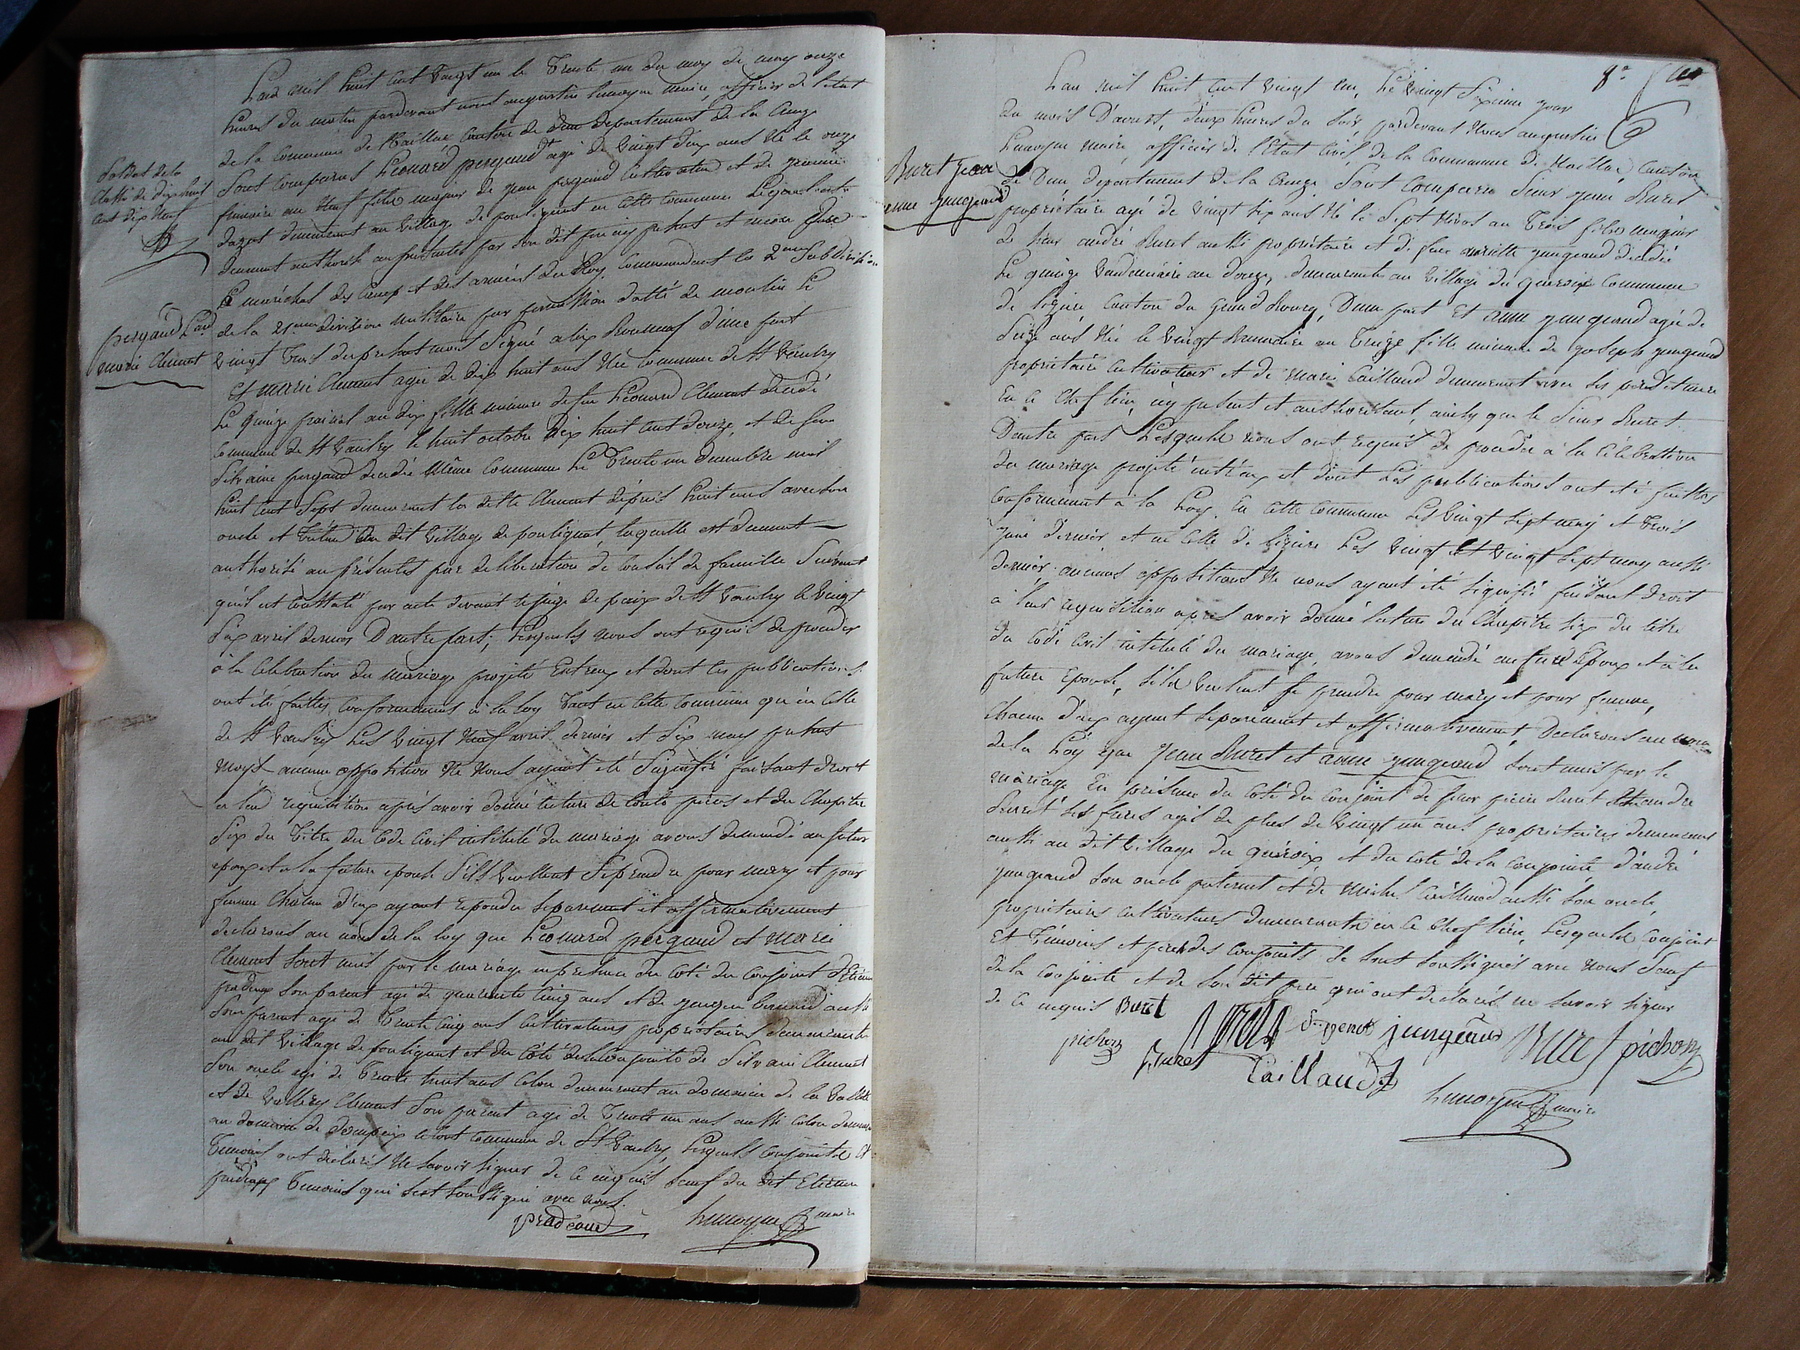 Lan mil huit cent vingt un le trente un du mois de may onze
heures du matin pardevant nous augustin lemoyne maire officier de l'état
de la Commune de Naillac Canton de Dun département de la Creuze
Sont Comparus Léonard pergaud agé de vingt deux ans né le onze
frimaire an neuf fils majeur de jean pergaud cultivateur et de
demeurant au village de poulignat en cette commune
dument authorisé au présentes par son dit père icy présent et
le maréchal des Camps et des armées du Roy Commandant la 2eme Subdivision
de la 21eme division militaire par permission dattée de moulin le
vingt trois du présent mois Signé alix d'une part
et marie Clement agée de dix huit ans née commune de St Vaulry
Le quinze prairial an dix fille mineure de feu Léonard Clement décédé
commune de St Vaulry le huit octobre dix huit cent douze, et de feue
Silvaine pergaud décédée même Commune Le trente un decembre mil
huit cent sept demeurant la ditte Clement depuis huit ans avec son
oncle et au dit village de poulignat, laquelle est dument
authorisé au présentes par deliberation de Conseil de famille Suivant
qu'il est constaté par acte devant le juge de paix de St Vaulry le vingt
Six avril dernier D'autre part; Lesquels nous ont requis de procéder
à la Célébration du mariage projeté Entreux et dont les publications
ont été faittes Conformement à la loy tant en cette commune qu'en celle
de St Vaulry Les vingt neuf avril dernier et Six may présent
moys aucune opposition Ne Nous ayant été Signifié faisant droit
a leur requisition après avoir donné lecture de toute pièces et du Chapitre
Six du Titre du Code Civil intitulé du mariage avons demandé au futur
époux et a la future épouse S'ils veullent Se prendre pour mary et pour
femme Chacun d'eux ayant repondu séparement et affirmativement
declarons au nom de la loy que Léonard pergaud et Marie
Clement Sont unis par le mariage en présence du coté du Conjoint d'Etienne
son parent agé de quarante Cinq ans et de aussi
Son parent agé de trente Cinq ans Cultivateurs propriétaires demeurants
au dit village de poulignat et du Côté de la Conjointe de Silvain Clement
Son oncle agé de trente huit ans Colon demeurant au domaine de la
et de Clement Son parent agé de trente un ans aussi Colon
au domaine de le tout Commune de St Vaulry, Lesquels Conjoints et
Témoins ont déclaré Ne Savoir Signer de ce enquis Sauf du dit Etienne
Témoins qui sest Soussigné avec nous.
pradeaud lemoyne maire
Soldat de la
Classe de dix huit
cent dix neuf
pergaud Lard
marie Clement
8e
Lan mil huit cent vingt un, Le vingt Sixième jour
du mois D'aoust, deux heures du soir, pardevant Nous augustin
Lemoyne maire, officier de l'Etat Civil de la Commune de Naillac Canton
de Dun département de la Creuze Sont Comparus Sieur jean Buret
propriétaire agé de vingt Six ans Né le Sept Nivos an Trois fils majeur
de Sieur andré Buret aussi propriétaire et de feue mariette jungeaud décédée
Le quinze Vandemiaire an Douze, demeurant au village du commune
de Canton du Grand Bourg, D'une part Et anne jungeaud agée de
Seize ans Née le vingt Brumaire an treize fille mineure de joseph jungeaud
propriétaire Cultivateur et de Marie Caillaud demeurant avec ses père et mère
En ce Chef lieu, icy présent et authorisant, ainsy que le Sieur Buret
D'autre part Lesquels nous ont requis de procéder à la Célébration
du mariage projeté entreux et dont Les publications ont été faittes
Conformement à la Loy, En cette Commune Les vingt Sept may et Trois
juin dernier, et en celle de Les vingt et vingt Sept may aussi
dernier aucunes oppositions Ne nous ayant été Signifié faisant droit
à leur requisition après avoir donné lecture du Chapitre Six du titre
du Code Civil intitulé du mariage, avons demandé au futur Epoux et à la
future Epouse, S'ils veulent se prendre pour mary et pour femme,
Chacun d'eux ayant séparement et affirmativement, Declarons au nom
de la Loy que Jean Buret et anne jungeaud Sont unis par le
mariage En présence du coté du Conjoint de Sieur Buret et andré
Buret Ses frères agés de plus de vingt un ans propriétaires demeurants
aussi au dit village du et du coté de la conjointe d'andré
jungeaud Son oncle paternel et de Michel Caillaud aussi Son oncle,
propriétaires cultivateurs demeurants en ce Chef lieu, Lesquels Conjoint
Et Témoins et père des Conjoints Se sont Soussignés avec nous Sauf
de la Conjointe et de Son dit père qui ont déclarés ne Savoir Signer
de ce enquis Buret
pichon Buret jungeaud Buret pichon
Buret Caillaud
lemoyne maire
Buret jean
anne jungeaud